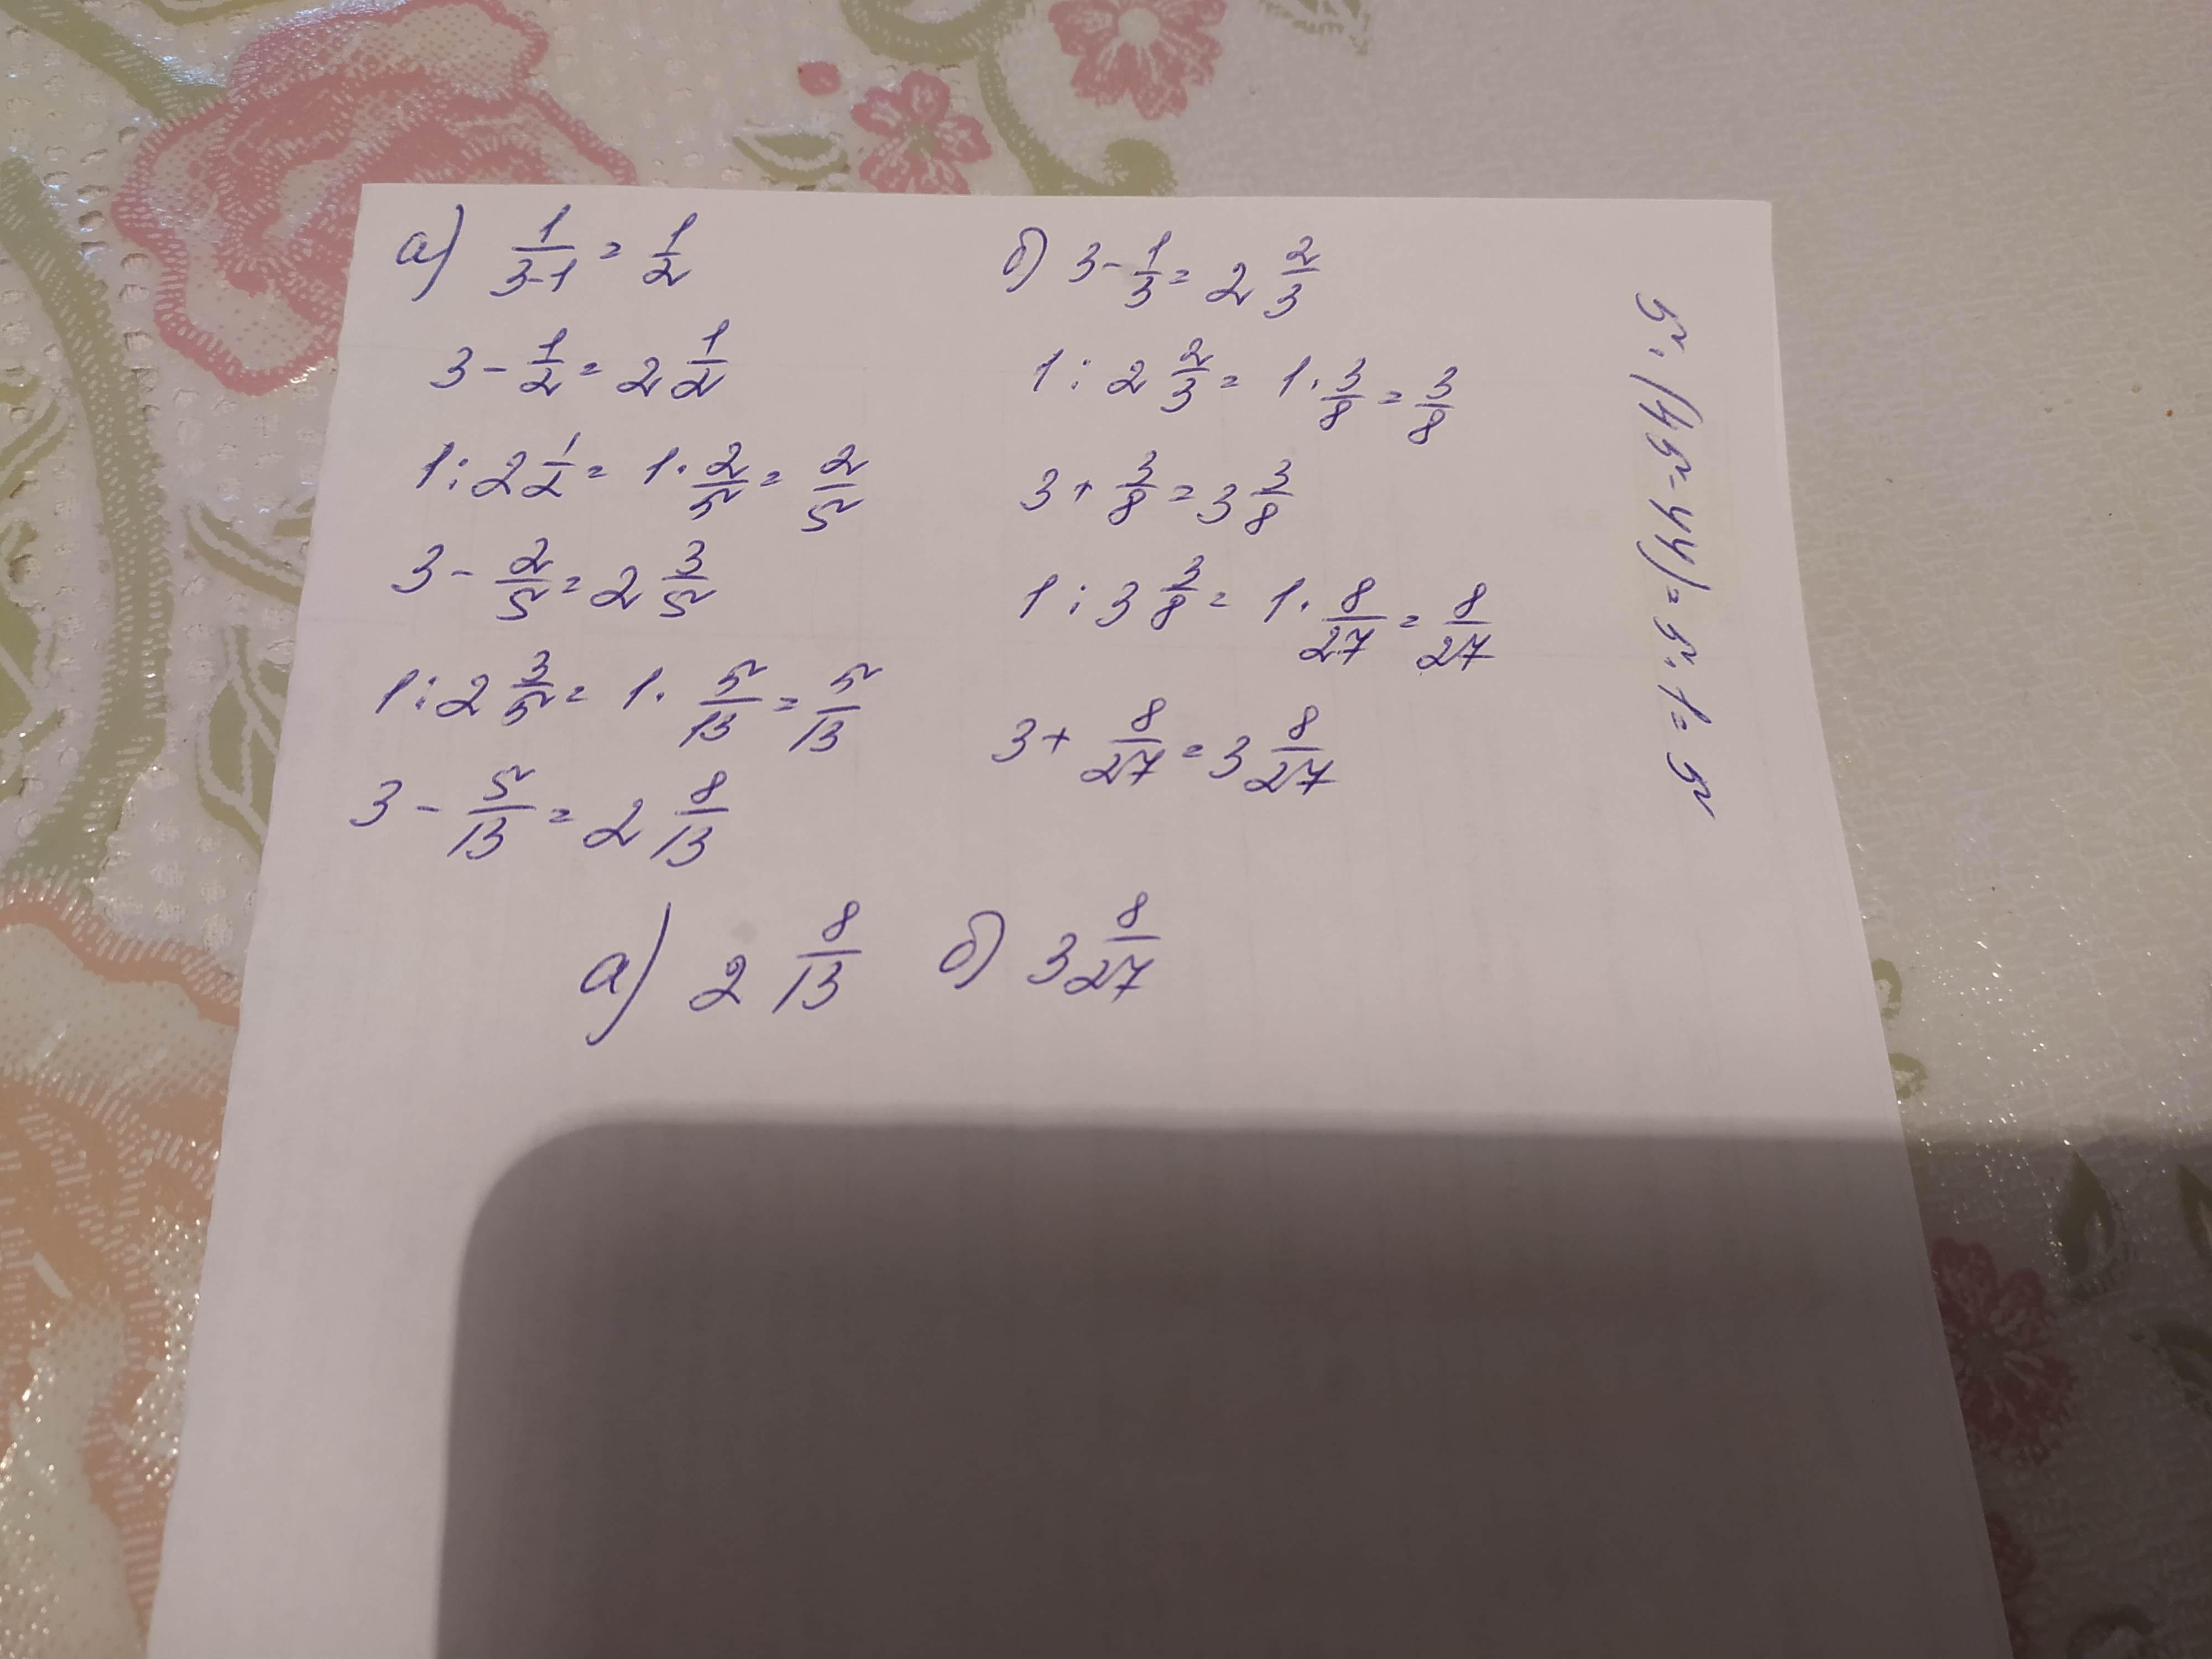 а) 1/(3-1) = 1/2
3 - 1/2 = 2 1/2
1 : 2 1/2 = 1 · 2/5 = 2/5
3 - 2/5 = 2 3/5
1 : 2 3/5 = 1 · 5/13 = 5/13
3 - 5/13 = 2 8/13
б) 3 - 1/3 = 2 2/3
1 : 2 2/3 = 1 · 3/8 = 3/8
3 + 3/8 = 3 3/8
1 : 3 3/8 = 1 · 8/27 = 8/27
3 + 8/27 = 3 8/27
а) 2 8/13 б) 3 8/27
5 : (45 - 44) = 5 : 1 = 5